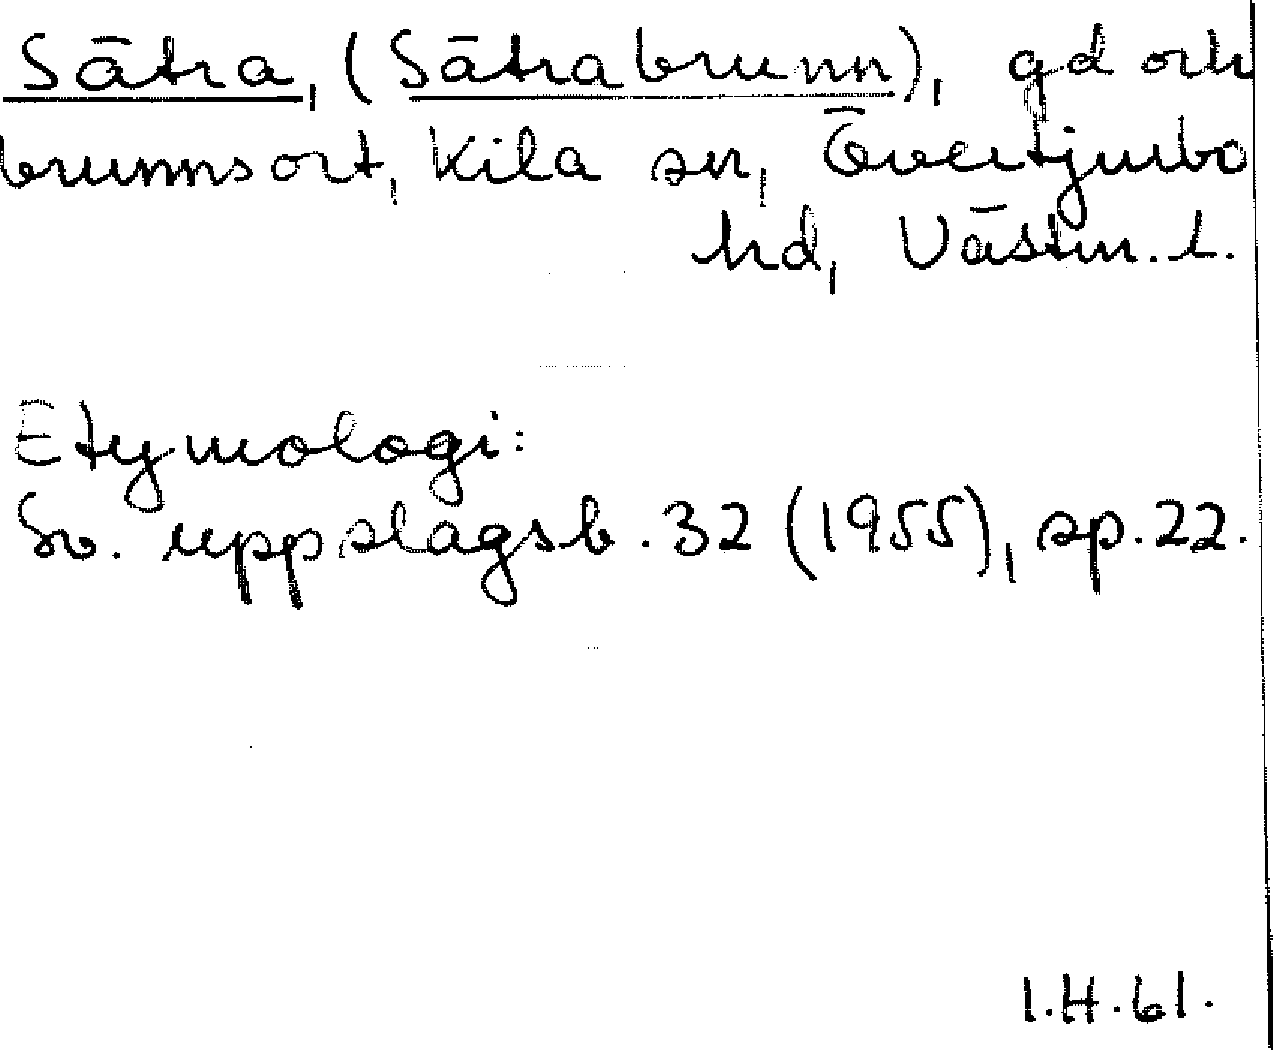 Sätra, (Sätra brunn), gd och
brunnsort, Kila sn, Övertjurbo
hd, Västm. l.
Etymologi:
Sv. uppslagsb. 32 (1955), sp. 22.
I.H. 61.